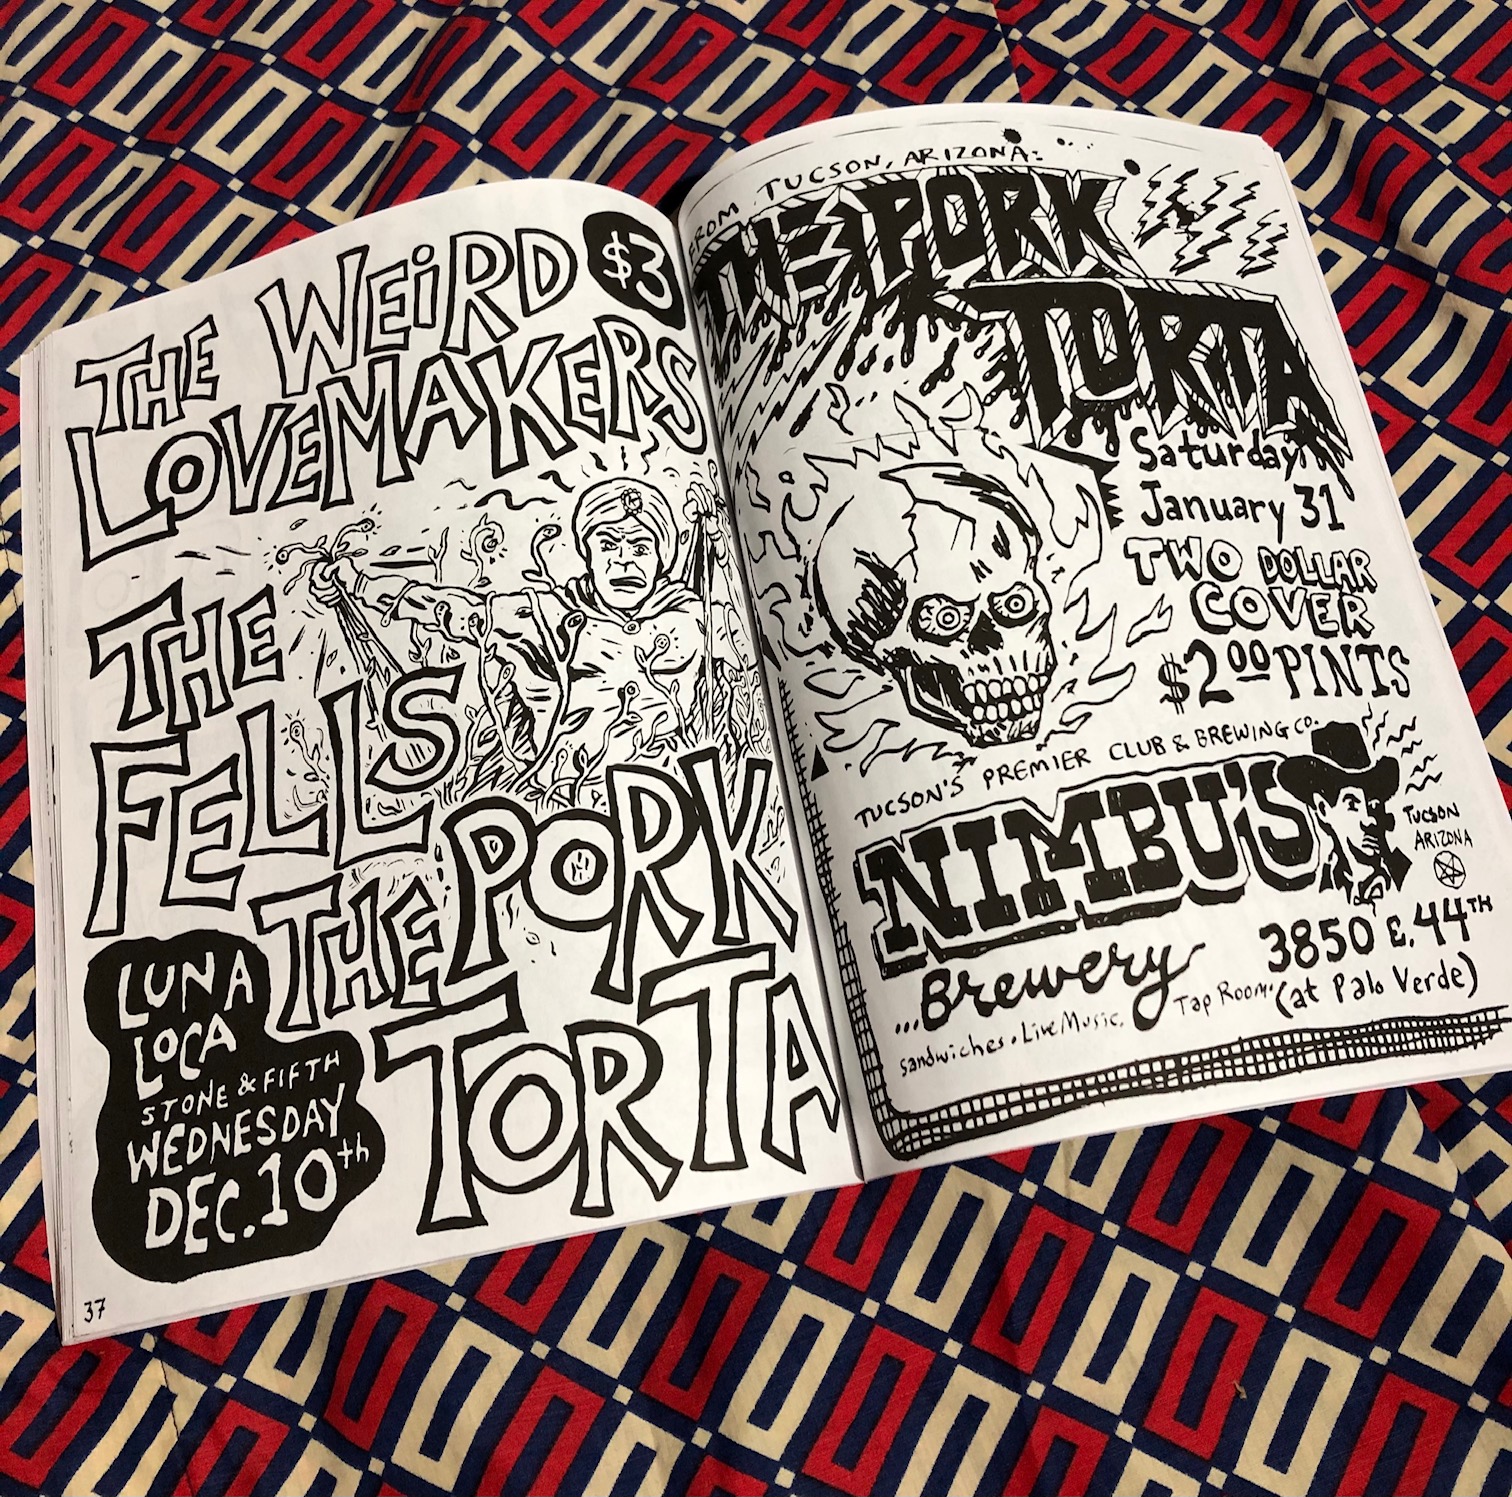 THE WEiRD
$3
LOVEMAKERS
THE
FELLS
THE PORK
TORTA
LUNA
LOCA
STONE & FIFTH
WEDNESDAY
DEC. 10th
37
FROM TUCSON, ARIZONA:
THE PORK
TORTA
Saturday
January 31
TWO DOLLAR
COVER
$2.00 PINTS
TUCSON'S PREMIER CLUB & BREWING CO.
NIMBU'S
TUCSON
ARIZONA
...Brewery
Tap Room.
3850 E. 44TH
(at Palo Verde)
sandwiches. Live Music.